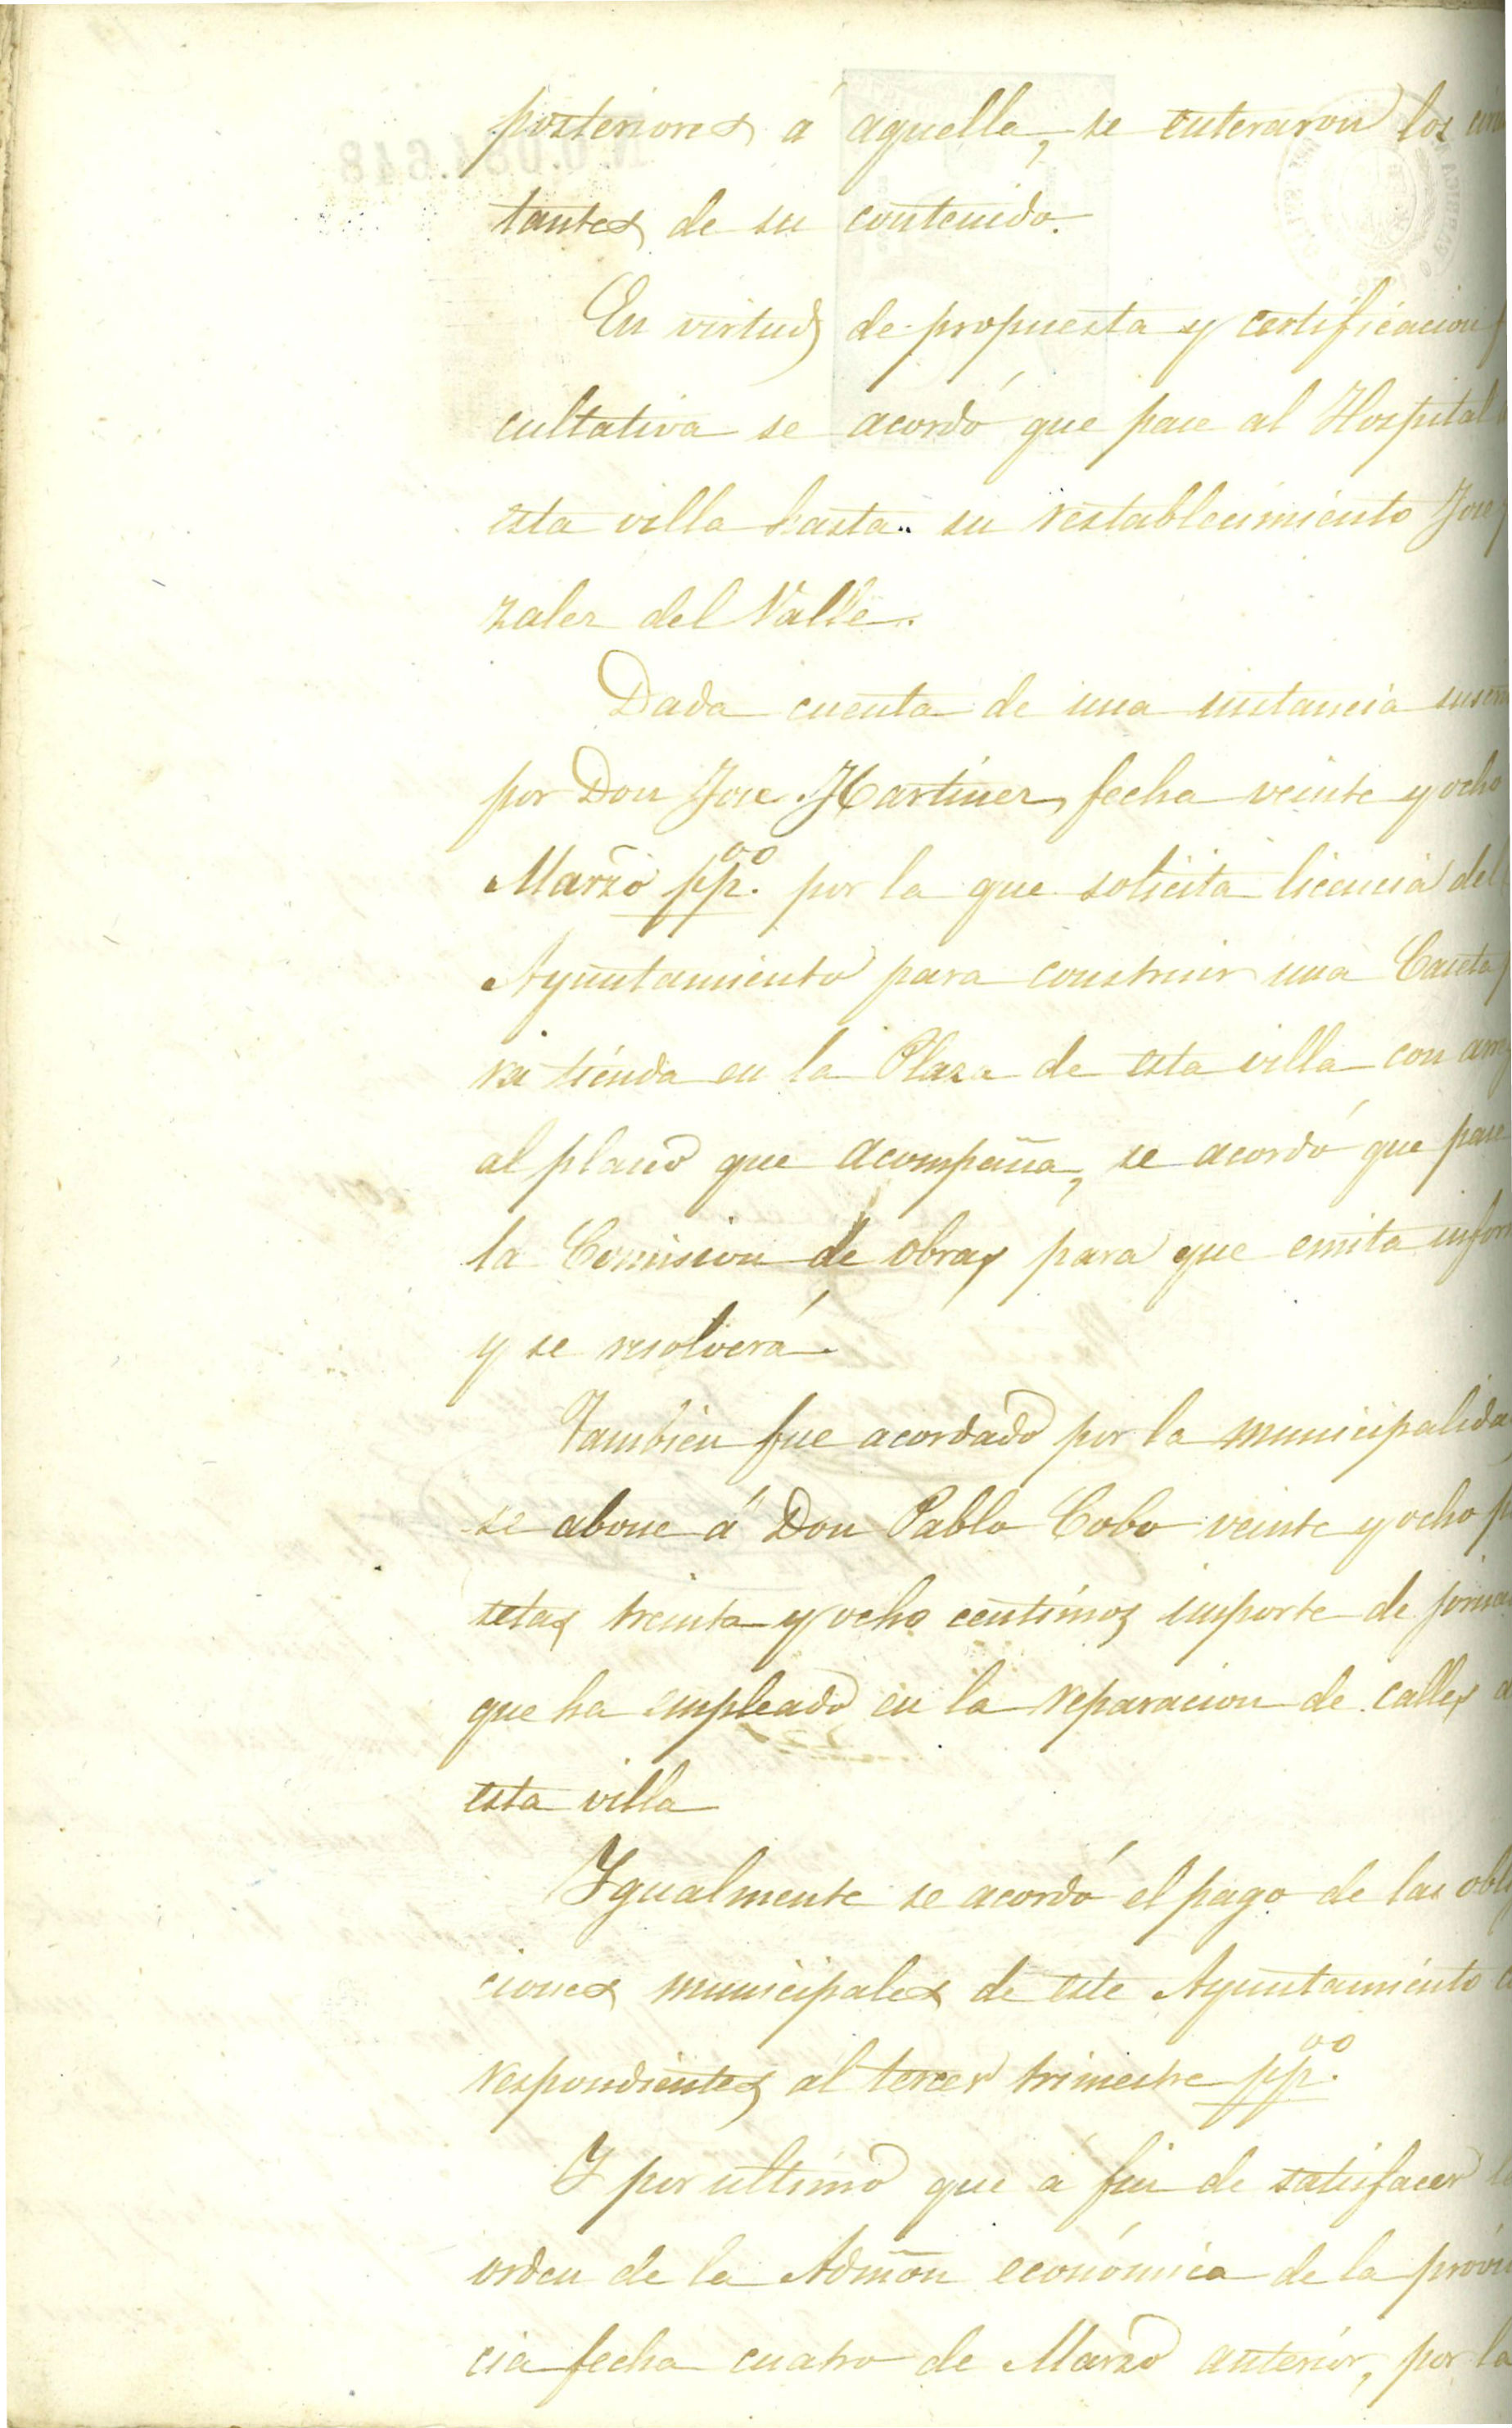 posteriores á aquella, se enteraron los
tantes de su contenido.
En virtud de propuesta y certificacion
cultativa se acordó que pase al Hospital
esta villa hasta su restablecimiento Jose
zalez del Valle.
Dada cuenta de una instancia suscri
por Don Jose Martinez, fecha veinte y ocho
Marzo pp.º por la que solicita licencia del
Ayuntamiento para construir una Caseta
ra tienda en la Plaza de esta villa con arre
al plano que acompaña, se acordó que pase
la Comision de obras para que emita infor
y se resolverá.
Tambien fue acordado por la municipalida
se abone á Don Pablo Cobo veinte y ocho pe
setas treinta y ocho centímos importe de jorna
que ha empleado en la reparacion de calles
esta villa
Igualmente se acordó el pago de las obli
ciones municipales de este Ayuntamiento
respondientes al tercer trimestre pp.º
Y por ultimo que á fin de satisfacer
orden de la Admon económica de la provin
cia fecha cuatro de Marzo anterior, por la